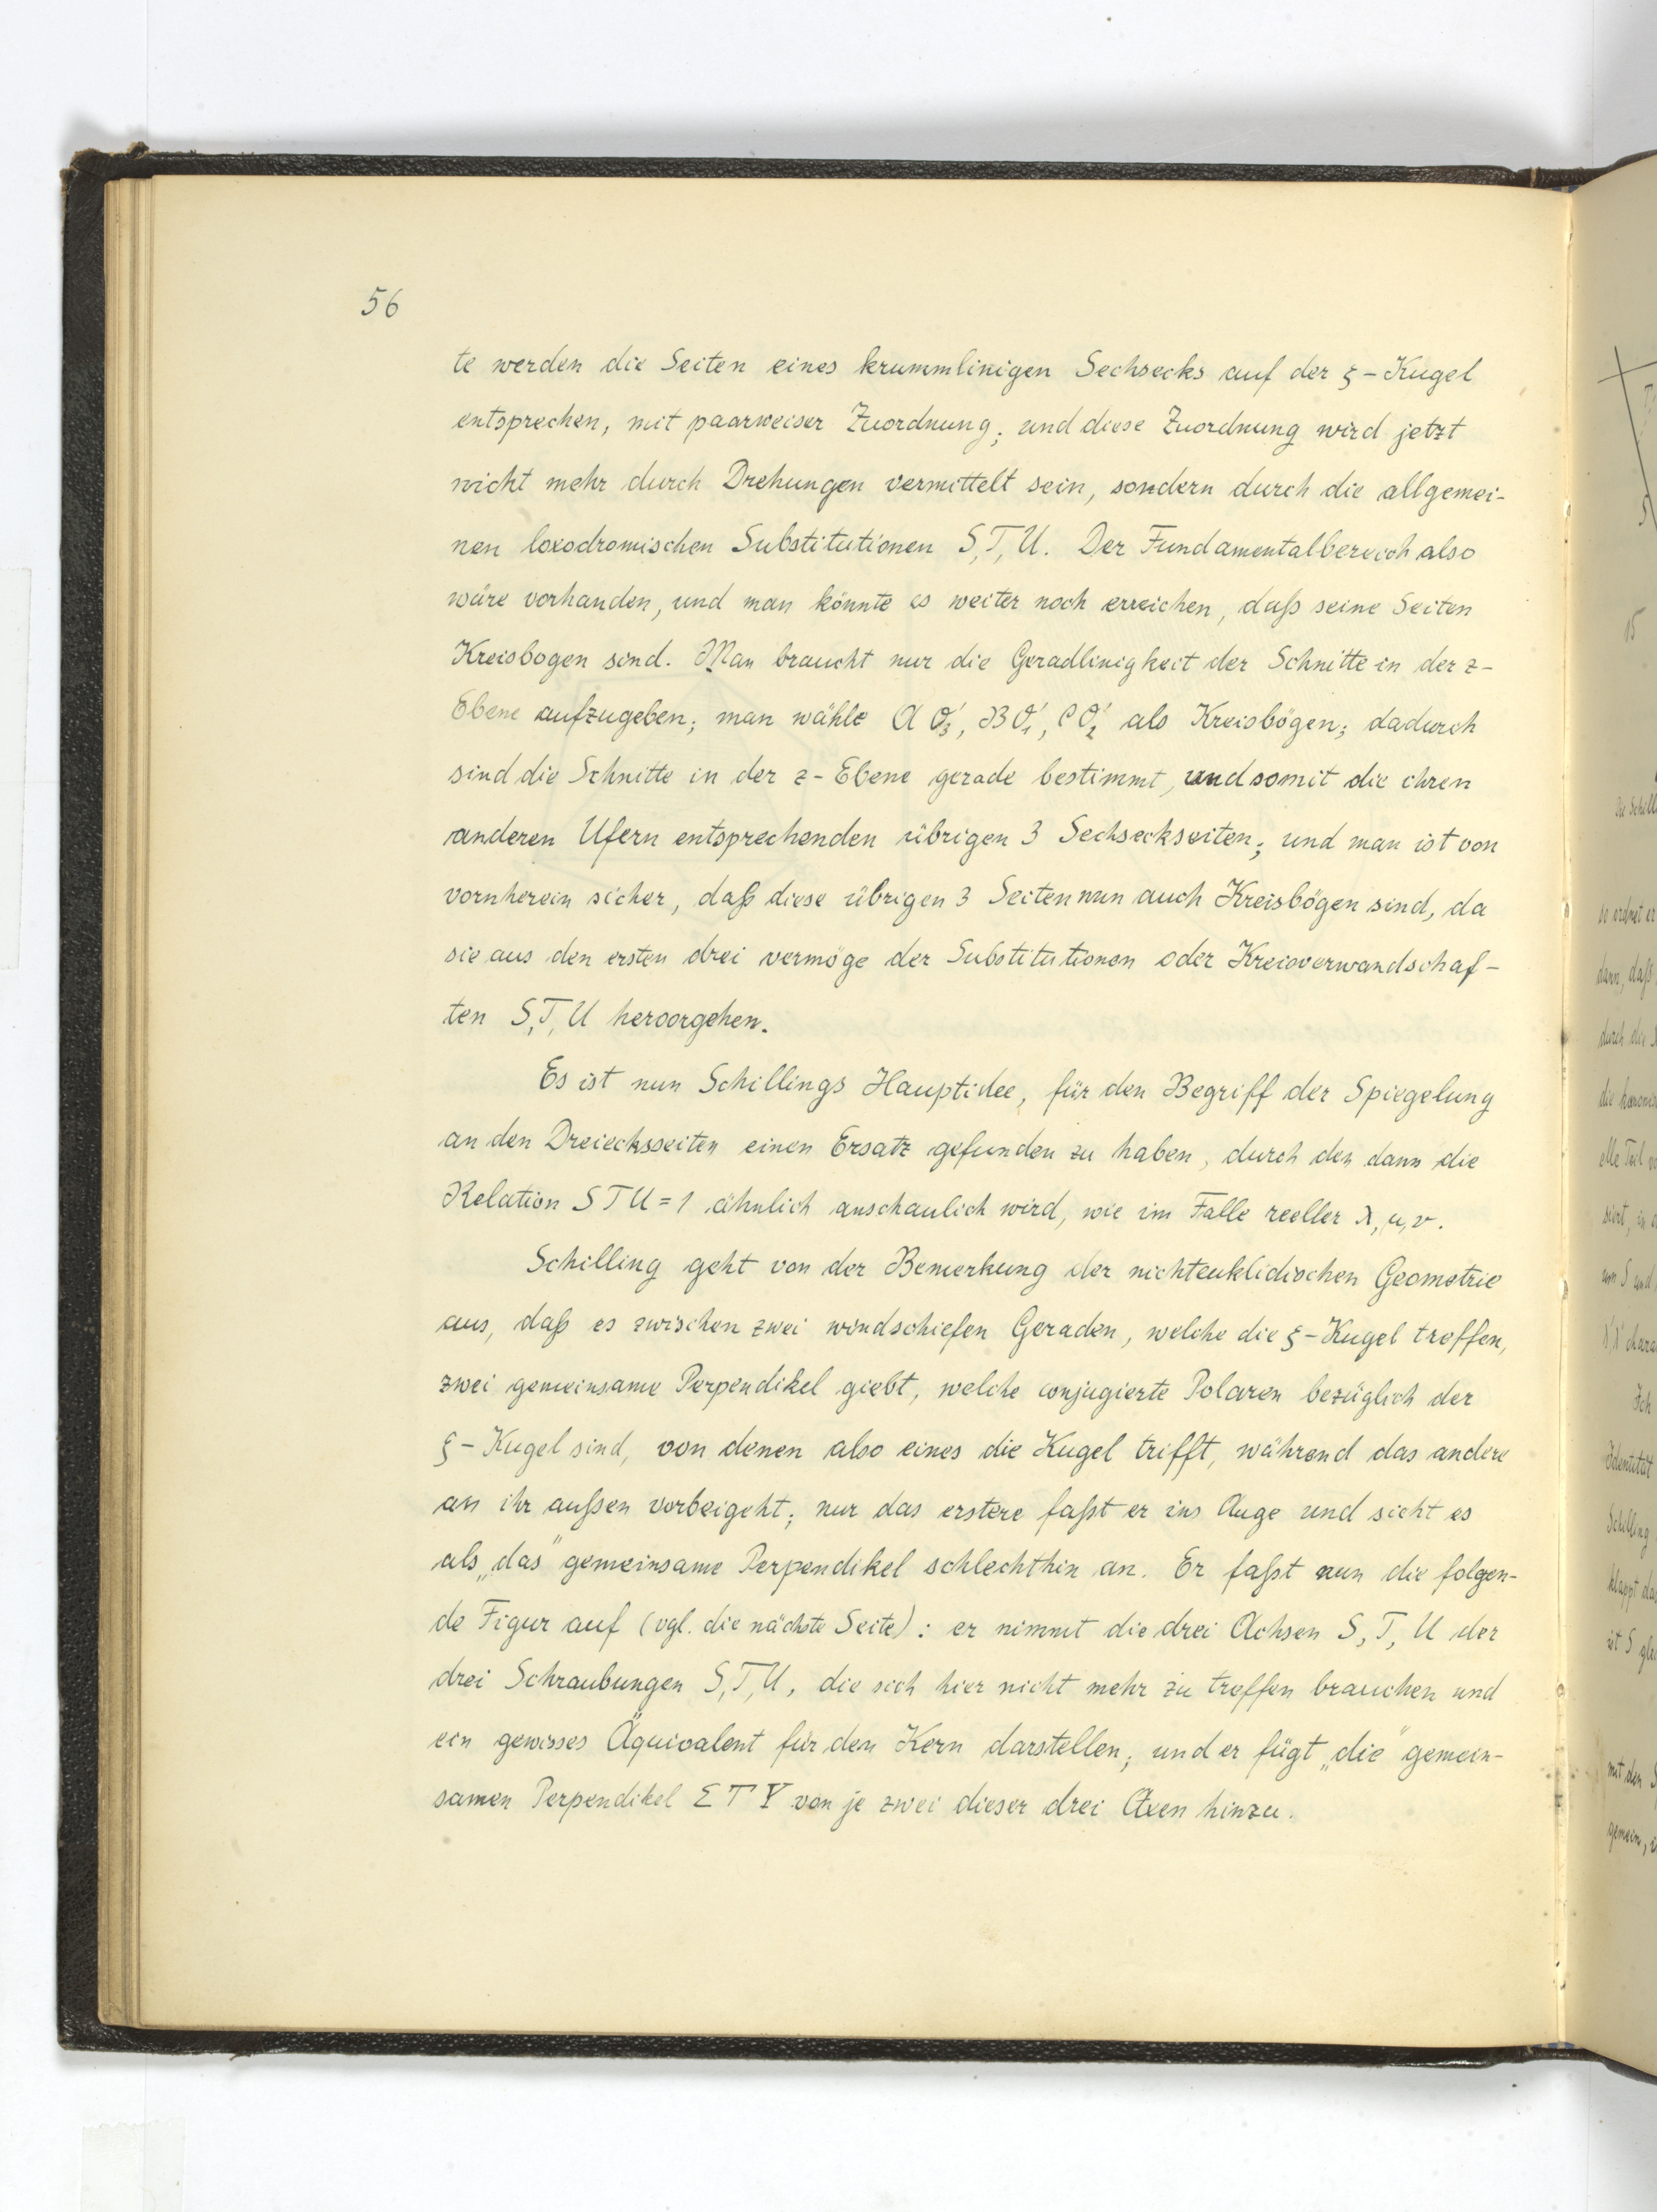 56
te werden die Seiten eines krummlinigen Sechsecks auf der ξ-Kugel
entsprechen, mit paarweiser Zuordnung; und diese Zuordnung wird jetzt
nicht mehr durch Drehungen vermittelt sein, sondern durch die allgemei-
nen loxodromischen Substitutionen S, T, U. Der Fundamentalbereich also
wäre vorhanden, und man könnte es weiter noch erreichen, daß seine Seiten
Kreisbogen sind. Man braucht nur die Geradlinigkeit der Schnitte in der z-
Ebene aufzugeben; man wähle A O₃', B O₁', C O₂' als Kreisbögen; dadurch
sind die Schnitte in der z-Ebene gerade bestimmt, und somit die ihren
anderen Ufern entsprechenden übrigen 3 Sechseckseiten; und man ist von
vornherein sicher, daß diese übrigen 3 Seiten nun auch Kreisbögen sind, da
sie aus den ersten drei vermöge der Substitutionen oder Kreisverwandschaf-
ten S, T, U hervorgehen.
Es ist nun Schillings Hauptidee, für den Begriff der Spiegelung
an den Dreiecksseiten einen Ersatz gefunden zu haben, durch den dann die
Relation S T U = 1 ähnlich anschaulich wird, wie im Falle reeller λ, μ, ν.
Schilling geht von der Bemerkung der nichteuklidischen Geometrie
aus, daß es zwischen zwei windschiefen Geraden, welche die ξ-Kugel treffen,
zwei gemeinsame Perpendikel giebt, welche conjugierte Polaren bezüglich der
ξ-Kugel sind, von denen also eines die Kugel trifft, während das andere
an ihr außen vorbeigeht; nur das erstere faßt er ins Auge und sieht es
als „das" gemeinsame Perpendikel schlechthin an. Er faßt nun die folgen-
de Figur auf (vgl. die nächste Seite): er nimmt die drei Achsen S, T, U der
drei Schraubungen S, T, U, die sich hier nicht mehr zu treffen brauchen und
ein gewisses Äquivalent für den Kern darstellen; und er fügt „die" gemein-
samen Perpendikel Σ T Υ von je zwei dieser drei Axen hinzu.